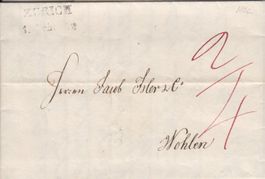 ZÜRICH
2
4
Herren Jacob Isler & Cº
Wohlen